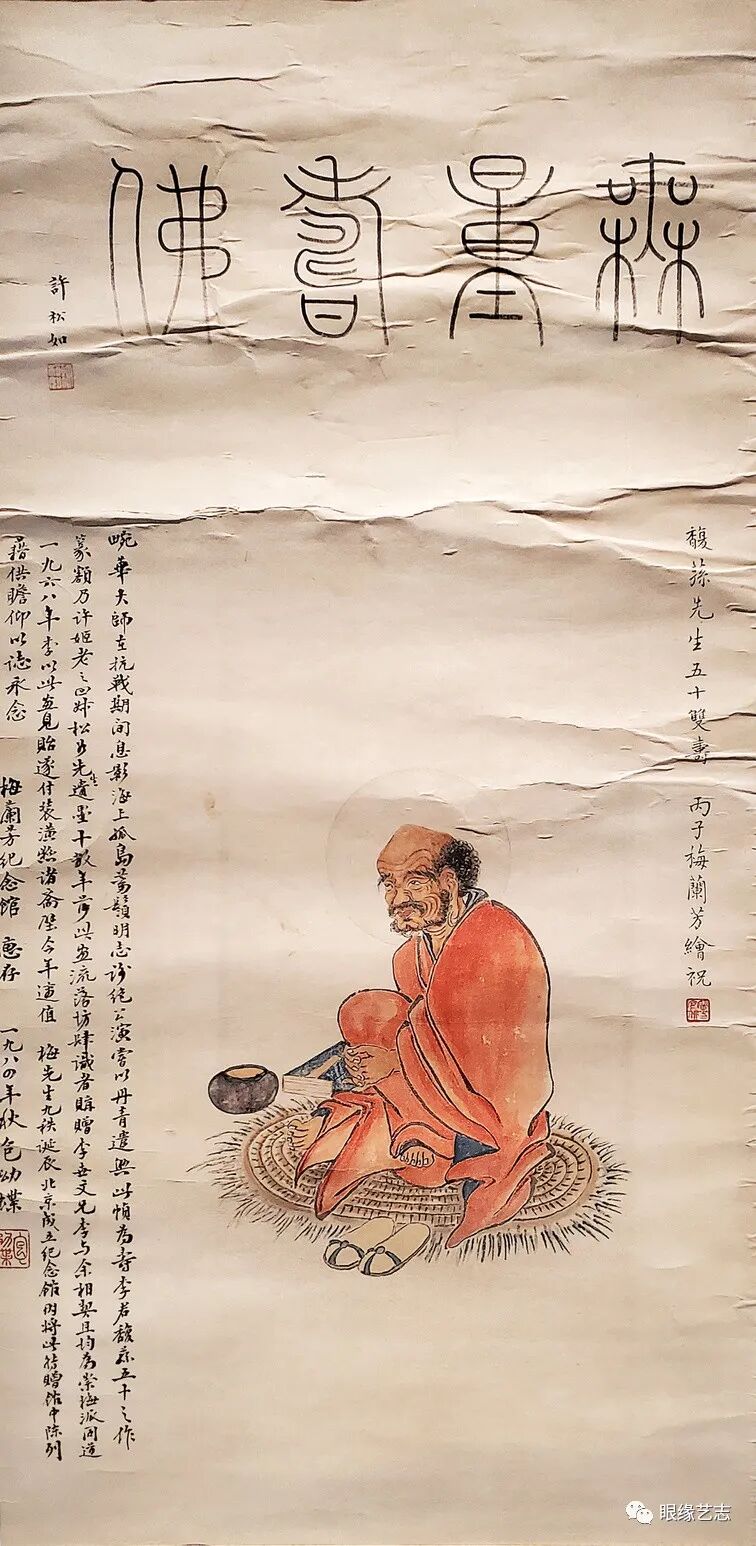 無量壽佛
許松如
馥蓀先生五十雙壽 丙子梅蘭芳繪祝
畹華大師在抗戰期間息影海上孤島蓄鬚明志謝絕公演嘗以丹青遣興此幀為壽李君馥蓀五十之作
篆額乃許姬老之四妹松如先生遺墨十數年前此畫流落坊肆識者贈李文兄李与余相契且均為崇梅派同道
一九六八年李以此畫見貽遂付裝潢懸諸齋壁今年適值 梅先生九秩誕辰北京成立紀念館因將此贈館中陳列
藉供瞻仰以誌永念 梅蘭芳紀念館 惠存 一九八四年秋包幼蝶
眼缘艺志